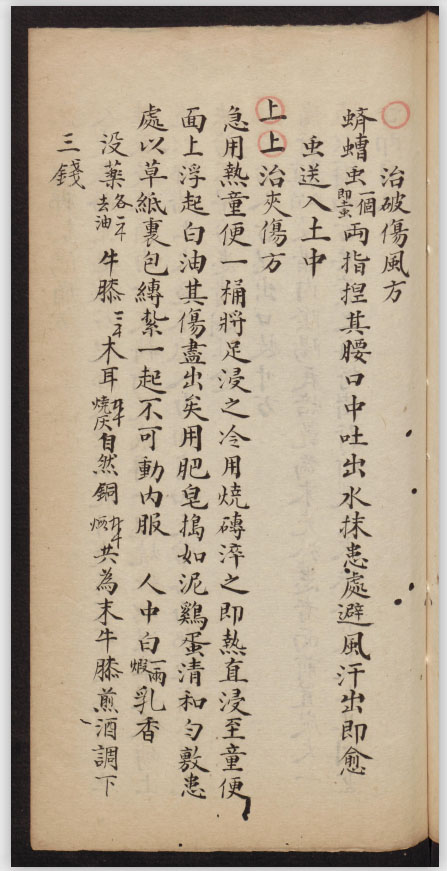 治破傷風方
蠐螬虫一個即土虫兩指揑其腰口中吐出水抹患處避風汗出即愈
虫送入土中
上上治夾傷方
急用熱童便一桶將足浸之冷用燒磚淬之即熱直浸至童便
面上浮起白油其傷盡出矣用肥皂搗如泥鷄蛋清和勻敷患
處以草紙裏包縛紮一起不可動内服 人中白一兩煆乳香
没藥各二去油牛膝三木耳燒灰自然銅煆共為末牛膝煎酒調下
三錢